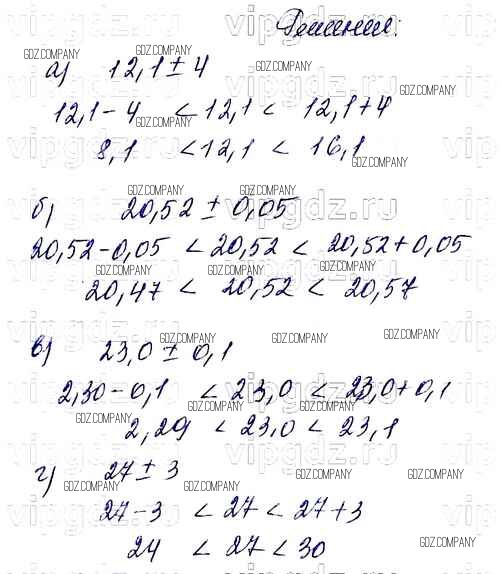 Решение:
а) 12,1 ± 4
12,1 - 4 < 12,1 < 12,1 + 4
8,1 < 12,1 < 16,1
б) 20,52 ± 0,05
20,52 - 0,05 < 20,52 < 20,52 + 0,05
20,47 < 20,52 < 20,57
в) 23,0 ± 0,1
2,30 - 0,1 < 23,0 < 23,0 + 0,1
2,29 < 23,0 < 23,1
г) 27 ± 3
27 - 3 < 27 < 27 + 3
24 < 27 < 30